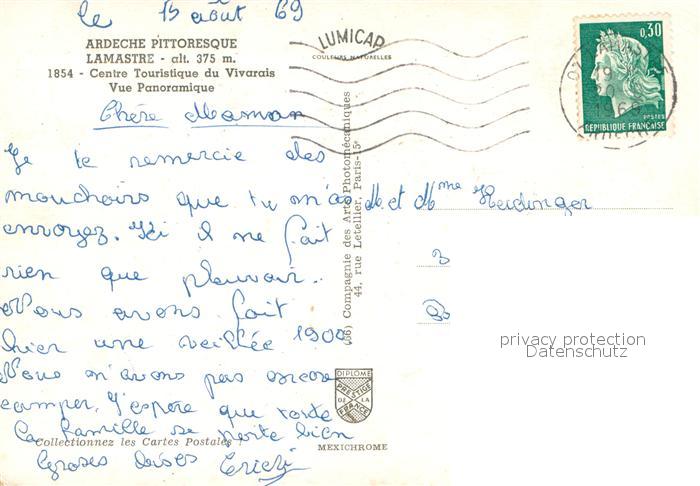 le 15 août 69
ARDECHE PITTORESQUE
LAMASTRE - alt. 375 m.
1854 - Centre Touristique du Vivarais
Vue Panoramique
LUMICAP
COULEURS NATURELLES
0,30
POSTES
REPUBLIQUE FRANÇAISE
Chère Maman
Je te remercie des
mouchoirs que tu m'as
envoyez. Ici il ne fait
rien que pleuvoir..
Nous avons fait
hier une veillée 1900
Nous n'avons pas encore
camper. J'espère que toute
la famille se porte bien
Grosses bises
M et Mme Heidinger
3
(66) Compagnie des Arts Photomécaniques
44, rue Letellier, Paris-15e
privacy protection
Datenschutz
DIPLOME
PRESTIGE
DE LA
FRANCE
MEXICHROME
Collectionnez les Cartes Postales !